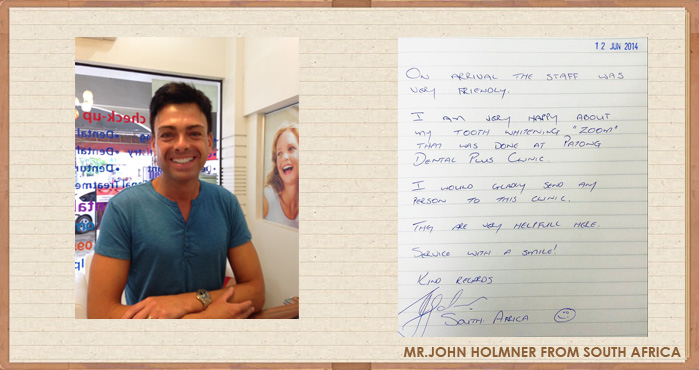 check-up
Dental
Dental
Dentu
12 JUN 2014
ON ARRIVAL THE STAFF WAS
VERY FRIENDLY.
I AM VERY HAPPY ABOUT
MY TOOTH WHITENING, "ZOOM"
THAT WAS DONE AT PATONG
DENTAL PLUS CLINIC
I WOULD GLADLY SEND ANY
PERSON TO THIS CLINIC.
THEY ARE VERY HELPFULL HERE.
SERVICE WITH A SMILE!
KIND REGARDS
SOUTH AFRICA
MR.JOHN HOLMNER FROM SOUTH AFRICA